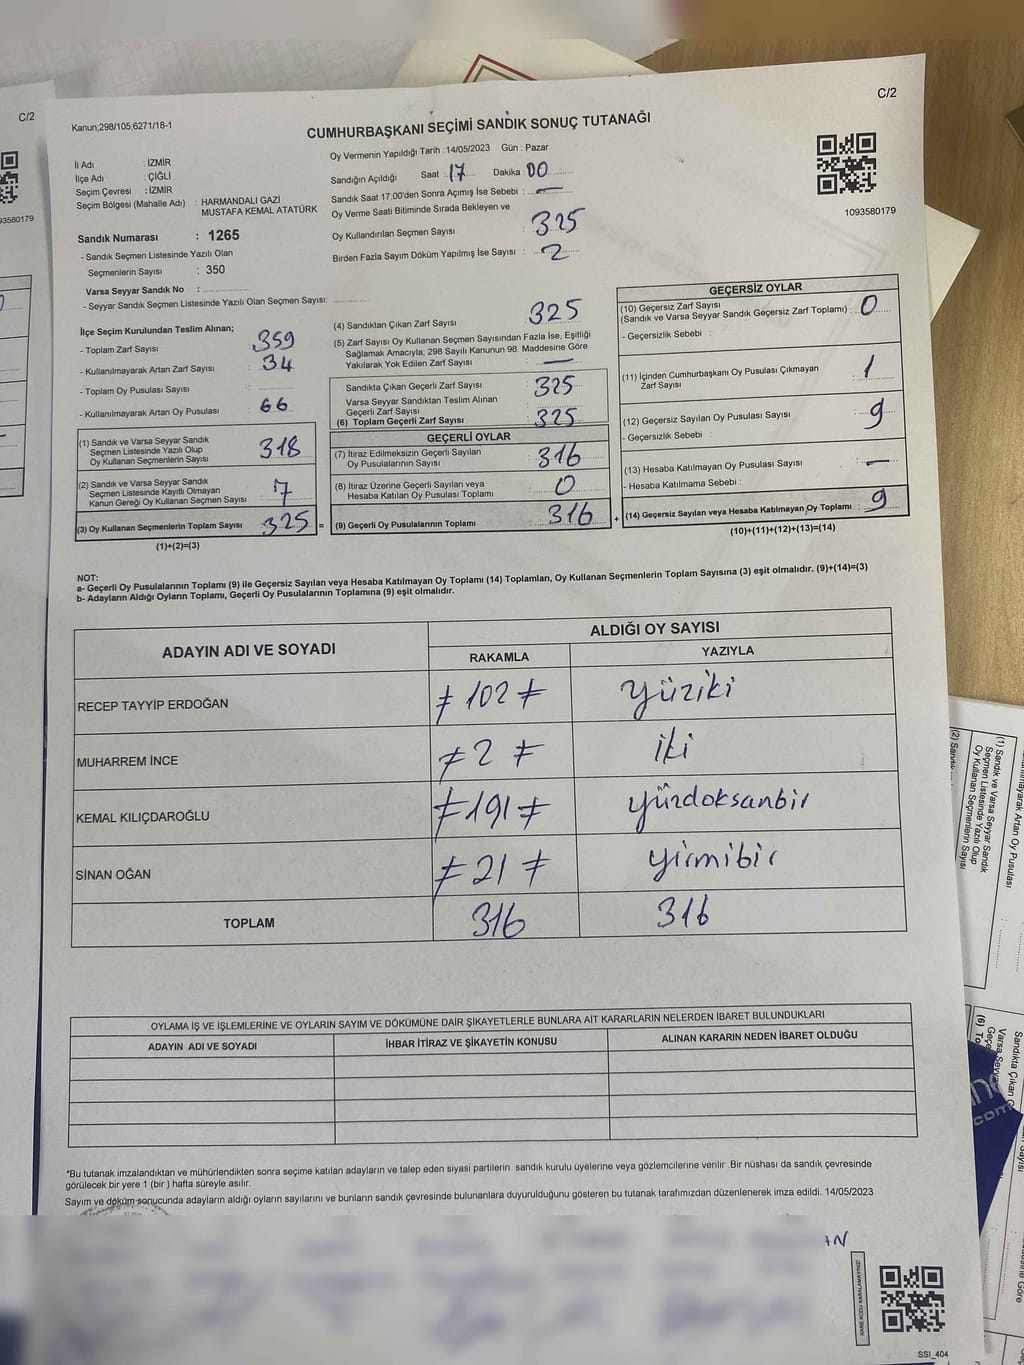 C/2
Kanun;298/105,6271/18-1
CUMHURBAŞKANI SEÇİMİ SANDIK SONUÇ TUTANAĞI
İl Adı : İZMİR
İlçe Adı : ÇİĞLİ
Seçim Çevresi : İZMİR
Seçim Bölgesi (Mahalle Adı) : HARMANDALI GAZİ
MUSTAFA KEMAL ATATÜRK
Sandık Numarası : 1265
- Sandık Seçmen Listesinde Yazılı Olan
Seçmenlerin Sayısı : 350
Varsa Seyyar Sandık No :
- Seyyar Sandık Seçmen Listesinde Yazılı Olan Seçmen Sayısı:
Oy Vermenin Yapıldığı Tarih :14/05/2023 Gün : Pazar
Sandığın Açıldığı Saat : 17 Dakika : 00
Sandık Saat 17.00'den Sonra Açımış İse Sebebi : —
Oy Verme Saati Bitiminde Sırada Bekleyen ve
Oy Kullandırılan Seçmen Sayısı : 325
Birden Fazla Sayım Döküm Yapılmış İse Sayısı : 2
1093580179
İlçe Seçim Kurulundan Teslim Alınan;
- Toplam Zarf Sayısı : 359
- Kullanılmayarak Artan Zarf Sayısı : 34
- Toplam Oy Pusulası Sayısı :
- Kullanılmayarak Artan Oy Pusulası : 66
(1) Sandık ve Varsa Seyyar Sandık
Seçmen Listesinde Yazılı Olup
Oy Kullanan Seçmenlerin Sayısı : 318
(2) Sandık ve Varsa Seyyar Sandık
Seçmen Listesinde Kayıtlı Olmayan
Kanun Gereği Oy Kullanan Seçmen Sayısı : 7
(3) Oy Kullanan Seçmenlerin Toplam Sayısı : 325 =
(1)+(2)=(3)
(4) Sandıktan Çıkan Zarf Sayısı : 325
(5) Zarf Sayısı Oy Kullanan Seçmen Sayısından Fazla İse, Eşitliği
Sağlamak Amacıyla, 298 Sayılı Kanunun 98. Maddesine Göre
Yakılarak Yok Edilen Zarf Sayısı : —
Sandıkta Çıkan Geçerli Zarf Sayısı : 325
Varsa Seyyar Sandıktan Teslim Alınan
Geçerli Zarf Sayısı :
(6) Toplam Geçerli Zarf Sayısı : 325
GEÇERLİ OYLAR
(7) İtiraz Edilmeksizin Geçerli Sayılan
Oy Pusulalarının Sayısı : 316
(8) İtiraz Üzerine Geçerli Sayılan veya
Hesaba Katılan Oy Pusulası Toplamı : 0
(9) Geçerli Oy Pusulalarının Toplamı : 316 +
GEÇERSİZ OYLAR
(10) Geçersiz Zarf Sayısı
(Sandık ve Varsa Seyyar Sandık Geçersiz Zarf Toplamı) : 0
- Geçersizlik Sebebi :
(11) İçinden Cumhurbaşkanı Oy Pusulası Çıkmayan
Zarf Sayısı : 1
(12) Geçersiz Sayılan Oy Pusulası Sayısı : 9
- Geçersizlik Sebebi :
(13) Hesaba Katılmayan Oy Pusulası Sayısı : —
- Hesaba Katılmama Sebebi :
(14) Geçersiz Sayılan veya Hesaba Katılmayan Oy Toplamı : 9
(10)+(11)+(12)+(13)=(14)
NOT:
a- Geçerli Oy Pusulalarının Toplamı (9) ile Geçersiz Sayılan veya Hesaba Katılmayan Oy Toplamı (14) Toplamları, Oy Kullanan Seçmenlerin Toplam Sayısına (3) eşit olmalıdır. (9)+(14)=(3)
b- Adayların Aldığı Oyların Toplamı, Geçerli Oy Pusulalarının Toplamına (9) eşit olmalıdır.
ADAYIN ADI VE SOYADI
ALDIĞI OY SAYISI
RAKAMLA YAZIYLA
RECEP TAYYİP ERDOĞAN ≠ 102 ≠ yüziki
MUHARREM İNCE ≠ 2 ≠ iki
KEMAL KILIÇDAROĞLU ≠ 191 ≠ yüzdoksanbir
SİNAN OĞAN ≠ 21 ≠ yirmibir
TOPLAM 316 316
OYLAMA İŞ VE İŞLEMLERİNE VE OYLARIN SAYIM VE DÖKÜMÜNE DAİR ŞİKAYETLERLE BUNLARA AİT KARARLARIN NELERDEN İBARET BULUNDUKLARI
ADAYIN ADI VE SOYADI İHBAR İTİRAZ VE ŞİKAYETİN KONUSU ALINAN KARARIN NEDEN İBARET OLDUĞU
*Bu tutanak imzalandıktan ve mühürlendikten sonra seçime katılan adayların ve talep eden siyasi partilerin sandık kurulu üyelerine veya gözlemcilerine verilir .Bir nüshası da sandık çevresinde
görülecek bir yere 1 (bir ) hafta süreyle asılır.
Sayım ve döküm sonucunda adayların aldığı oyların sayılarını ve bunların sandık çevresinde bulunanlara duyurulduğunu gösteren bu tutanak tarafımızdan düzenlenerek imza edildi. 14/05/2023
KARE KODU KARALAMAYINIZ!
SSI_404
C/2
93580179
(1) Sandık ve Varsa Seyyar Sandık
Seçmen Listesinde Yazılı Olup
Oy Kullanan Seçmenlerin Sayısı